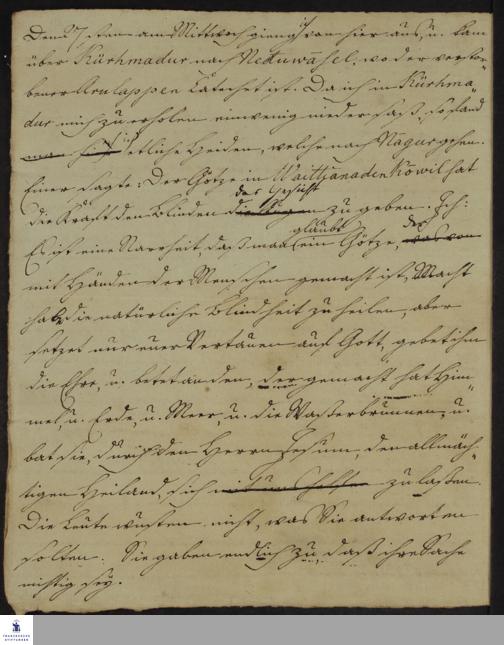 Den 7 dito am Mittwoch gieng ich von hier aus, u. kam
über Kürhmadur nach Neduwasel, wo der verstor-
bener Arulappen Catechet ist. Da ich in Kürhma-
dur mich zu erholen ein wenig nieder saß, so fand
ich etliche Heiden, welche nach Nagur gehen.
Einer sagte: Der Götze in Waittjanadenkowil hat
die Kraft den Blinden das Gesicht zu geben. Ich:
Es ist eine Narrheit, daß man glaubt ein Götze, der
mit Händen der Menschen gemacht ist, Macht
habe die natürliche Blindheit zu heilen, aber
setzet nur euer Vertrauen auf Gott, gebet ihm
die Ehre, u. betet an den, der gemacht hat Him-
mel u. Erde, u. Meer, u. die Waßerbrunnen, u.
bat sie, durch den Herrn Jesum, den allmäch-
tigen Heiland, sich zu laßen.
Die Leute wusten nicht, was Sie antworten
solten. Sie gaben endlich zu, daß ihre Sache
nichtig sey.
FRANCKESCHE
STIFTUNGEN